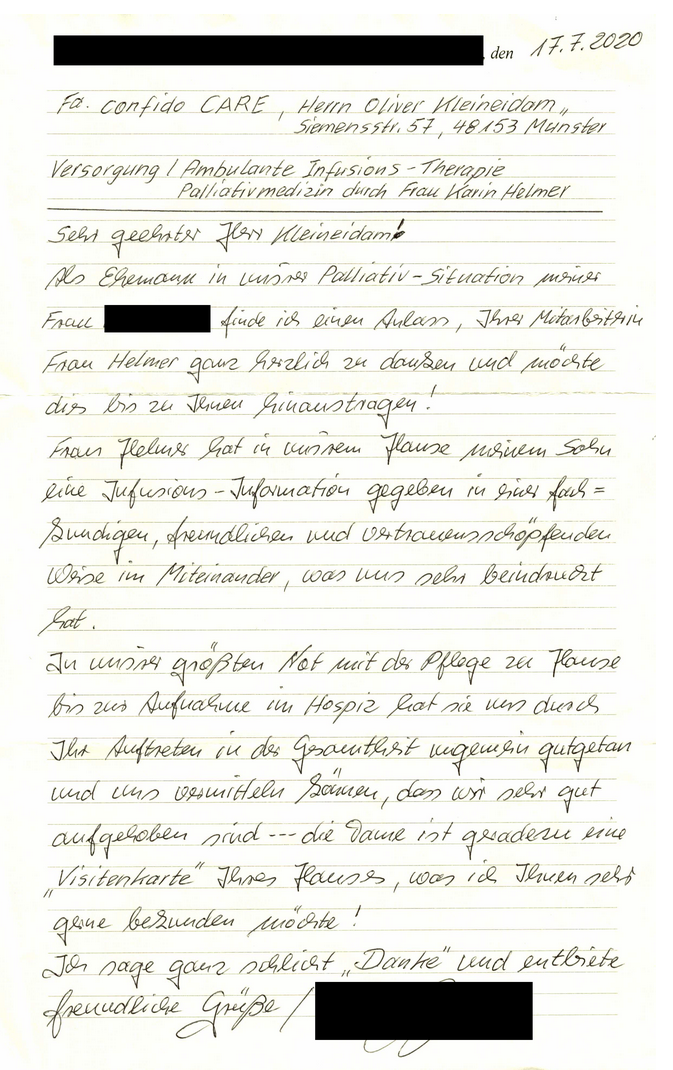 , den 17.7.2020
Fa. confido CARE, Herrn Oliver Kleineidam,,
Siemensstr. 57, 48153 Münster
Versorgung / Ambulante Infusions-Therapie
Palliativmedizin durch Frau Karin Helmer
Sehr geehrter Herr Kleineidam!
Als Ehemann in unsrer Palliativ-Situation meiner
Frau finde ich einen Anlass, Ihrer Mitarbeiterin
Frau Helmer ganz herzlich zu danken und möchte
dies bis zu Ihnen hinaustragen!
Frau Helmer hat in unsrem Hause meinem Sohn
eine Infusions-Information gegeben in einer fach=
kundigen, freundlichen und vertrauensschöpfenden
Weise im Miteinander, was uns sehr beindruckt
hat.
In unsrer größten Not mit der Pflege zu Hause
bis zur Aufnahme im Hospiz hat sie uns durch
Ihr Auftreten in der Gesamtheit ungemein gutgetan
und uns vermitteln können, dass wir sehr gut
aufgehoben sind --- die Dame ist geradezu eine
„Visitenkarte" Ihres Hauses, was ich Ihnen sehr
gerne bekunden möchte!
Ich sage ganz schlicht „Danke" und entbiete
freundliche Grüße /